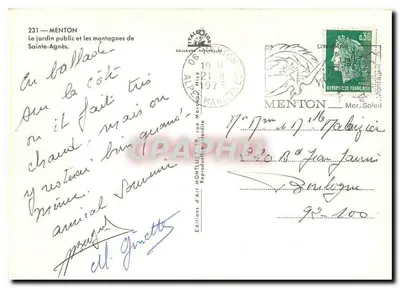 231 — MENTON
Le jardin public et les montagnes de
Sainte-Agnès.
En ballade
sur la côte
où il fait très
chaud, mais on
y resterai bien quand
même.
amical souvenir
M. Ginette
Editions d'Art
Reproduction interdite
06 MENTON
19 H
21-
197
ALPES MARITIMES
MENTON
Mer. Soleil
Montagnes
0,30
REPUBLIQUE FRANCAISE
Mr Mme et Mlle
Bd Jean Jaurès
Boulogne
92-100
Cartes